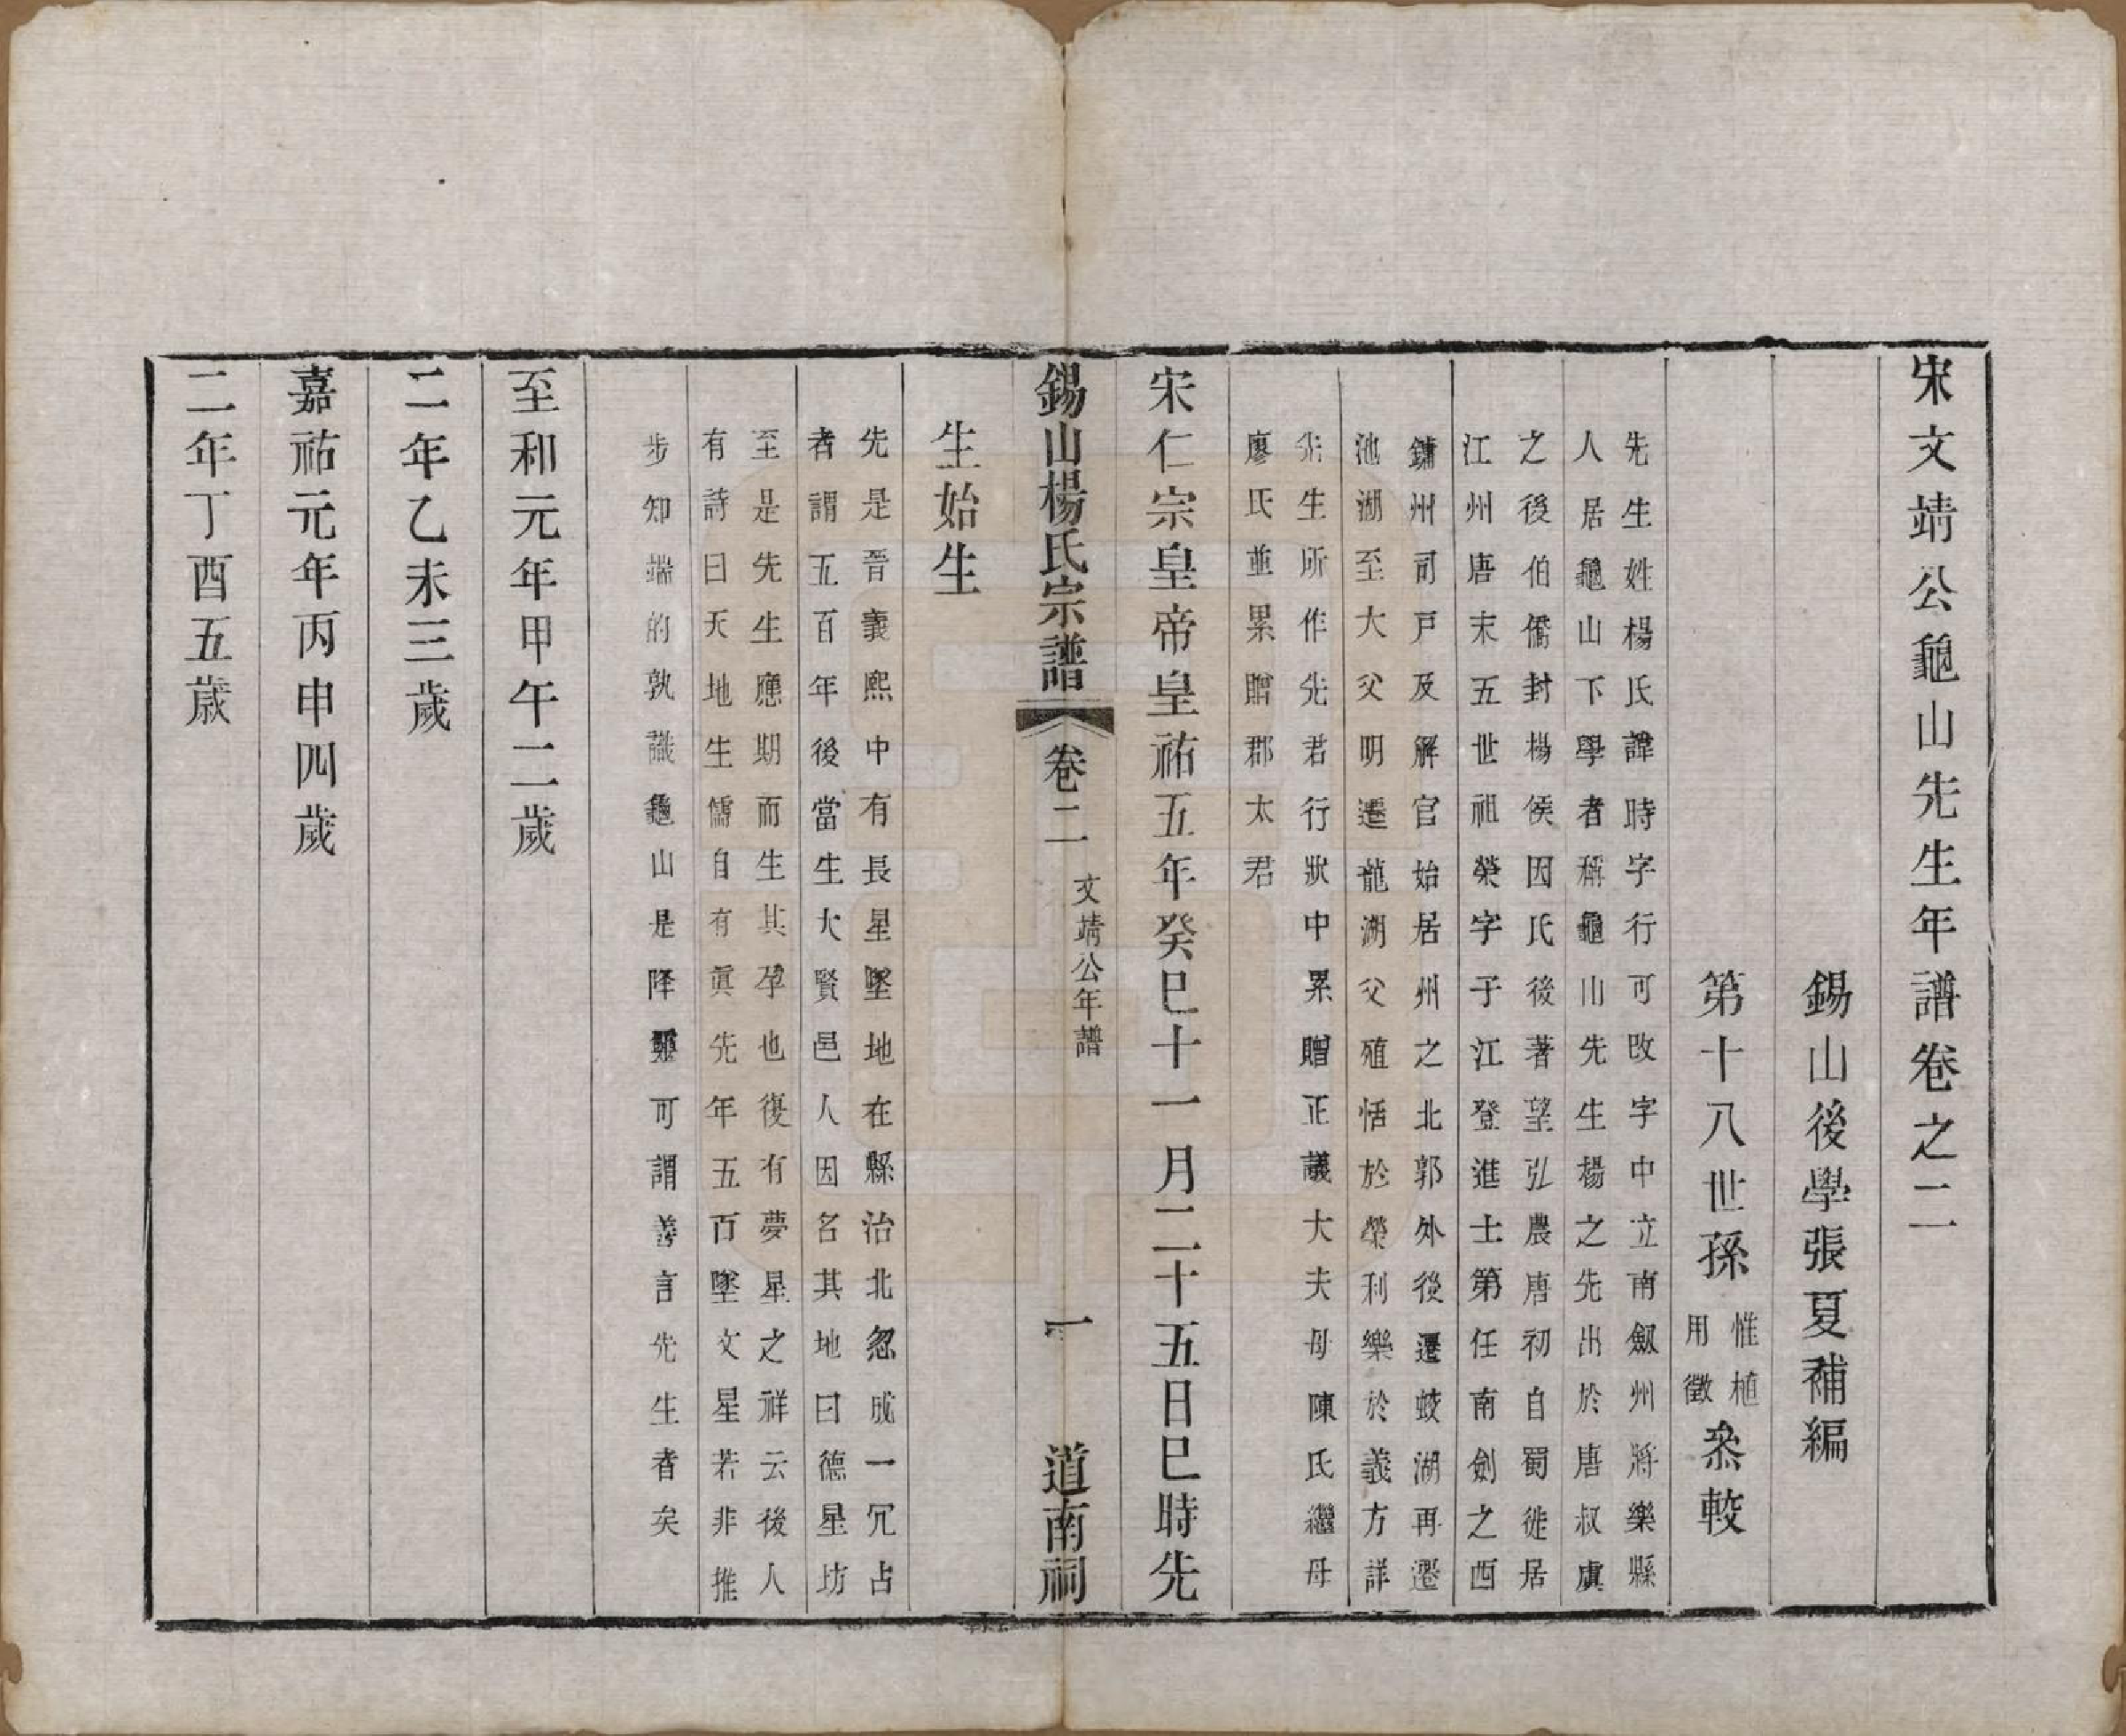 宋文靖公龜山先生年譜卷之二
錫山後學張夏補編
第十八世孫
惟植
用徵
叅較
先生姓楊氏諱時字行可改字中立南劔州將樂縣
人居龜山下學者稱龜山先生楊之先出於唐叔虞
之後伯僑封楊侯因氏後著望弘農唐初自蜀徙居
江州唐末五世祖榮字子江登進士第任南劍之西
鏞州司戸及解官始居州之北郭外後遷蛟湖再遷
池湖至大父明遷龍湖父殖恬於榮利樂於義方詳
先生所作先君行狀中累贈正議大夫母陳氏繼母
廖氏並累贈郡太君
宋仁宗皇帝皇祐五年癸巳十一月二十五日巳時先
錫山楊氏宗譜
卷二
文靖公年譜
一
道南祠
生始生
先是晉義熙中有長星墜地在縣治北忽成一冗占
者謂五百年後當生大賢邑人因名其地曰德星坊
至是先生應期而生其孕也復有夢星之祥云後人
有詩曰天地生儒自有眞先年五百墜文星若非推
步知端的孰識龜山是降靈可謂善言先生者矣
至和元年甲午二歲
二年乙未三歲
嘉祐元年丙申四歲
二年丁酉五歲